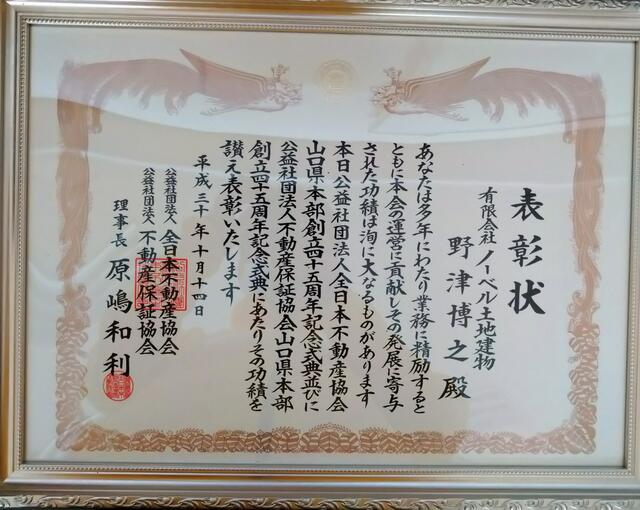 表彰状
有限会社 ノーベル土地建物
野津博之殿
あなたは多年にわたり業務に精励すると
ともに本会の運営に貢献しその発展に寄与
された功績は洵に大なるものがあります
本日公益社団法人全日本不動産協会
山口県本部創立四十五周年記念式典並びに
公益社団法人不動産保証協会山口県本部
創立四十五周年記念式典にあたりその功績を
讃え表彰いたします
平成三十年十月十四日
公益社団法人 全日本不動産協会
公益社団法人 不動産保証協会
理事長 原嶋和利